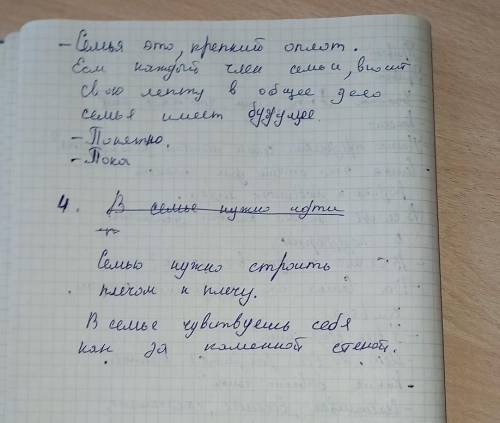 - Семья это, крепкий оплот.
Если каждый член семьи, вносит
свою лепту в общее дело
семья имеет будущее.
- Понятно.
- Пока
4. В семье нужно идти
Семью нужно строить
плечом к плечу.
В семье чувствуешь себя
как за каменной стеной.